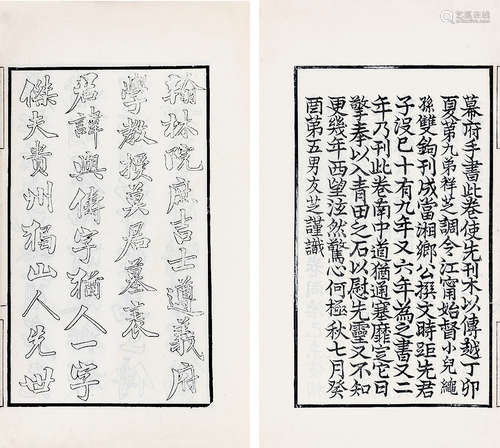 翰林院庶吉士遵義府
學教授莫君墓表
君諱與儔字猶人一字
傑夫貴州獨山人先世
幕府手書此卷使先刊木以傳越丁卯
夏弟九弟祥芝調令江甯始督小兒繩
孫雙鉤刊成當湘鄉公撰文時距先君
子沒已十有九年又六年為之書又二
年乃刊此卷南中道猶通塞靡定它日
擎奉以入青田之石以慰先靈又不知
更幾年西望泫然驚心何極秋七月癸
酉第五男友芝謹識